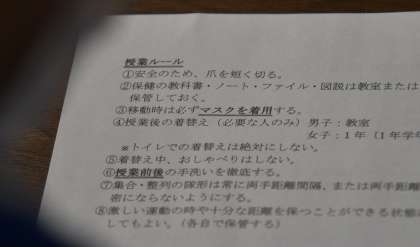 授業ルール
①安全のため、爪を短く切る。
②保健の教科書・ノート・ファイル・図説は教室または
保管しておく。
③移動時は必ずマスクを着用する。
④授業後の着替え（必要な人のみ）男子：教室
女子：1年（1年学年
※トイレでの着替えは絶対にしない。
⑤着替え中、おしゃべりはしない。
⑥授業前後の手洗いを徹底する。
⑦集合・整列の隊形は常に両手距離間隔、または両手距離
密にならないようにする。
⑧激しい運動の時や十分な距離を保つことができる状態
してもよい。（各自で保管する）